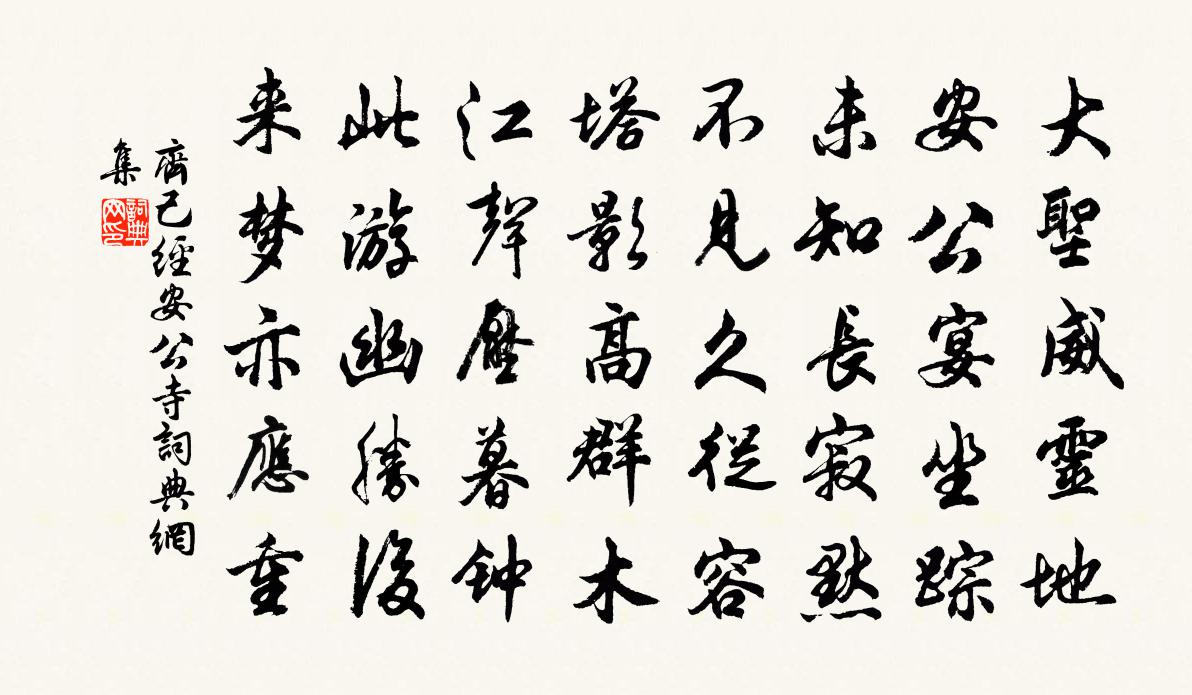 大聖威靈地
安公宴坐踪
未知長寂默
不見久從容
塔影高群木
江聲壓暮钟
此游幽勝後
来梦亦應重
齊己經安公寺詞典網
集
詞典
网印